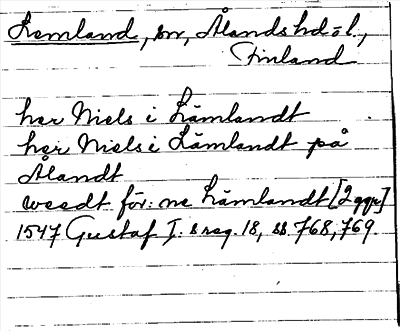 Lemland, sn, Ålands hd o. l.,
Finland
her Niels i Lämlandt
her Niels i Lämlandt på
Ålandt
weedt för: ne Lämlandt [2 ggr]
1547 Gustaf I:s reg. 18, ss. 768, 769.